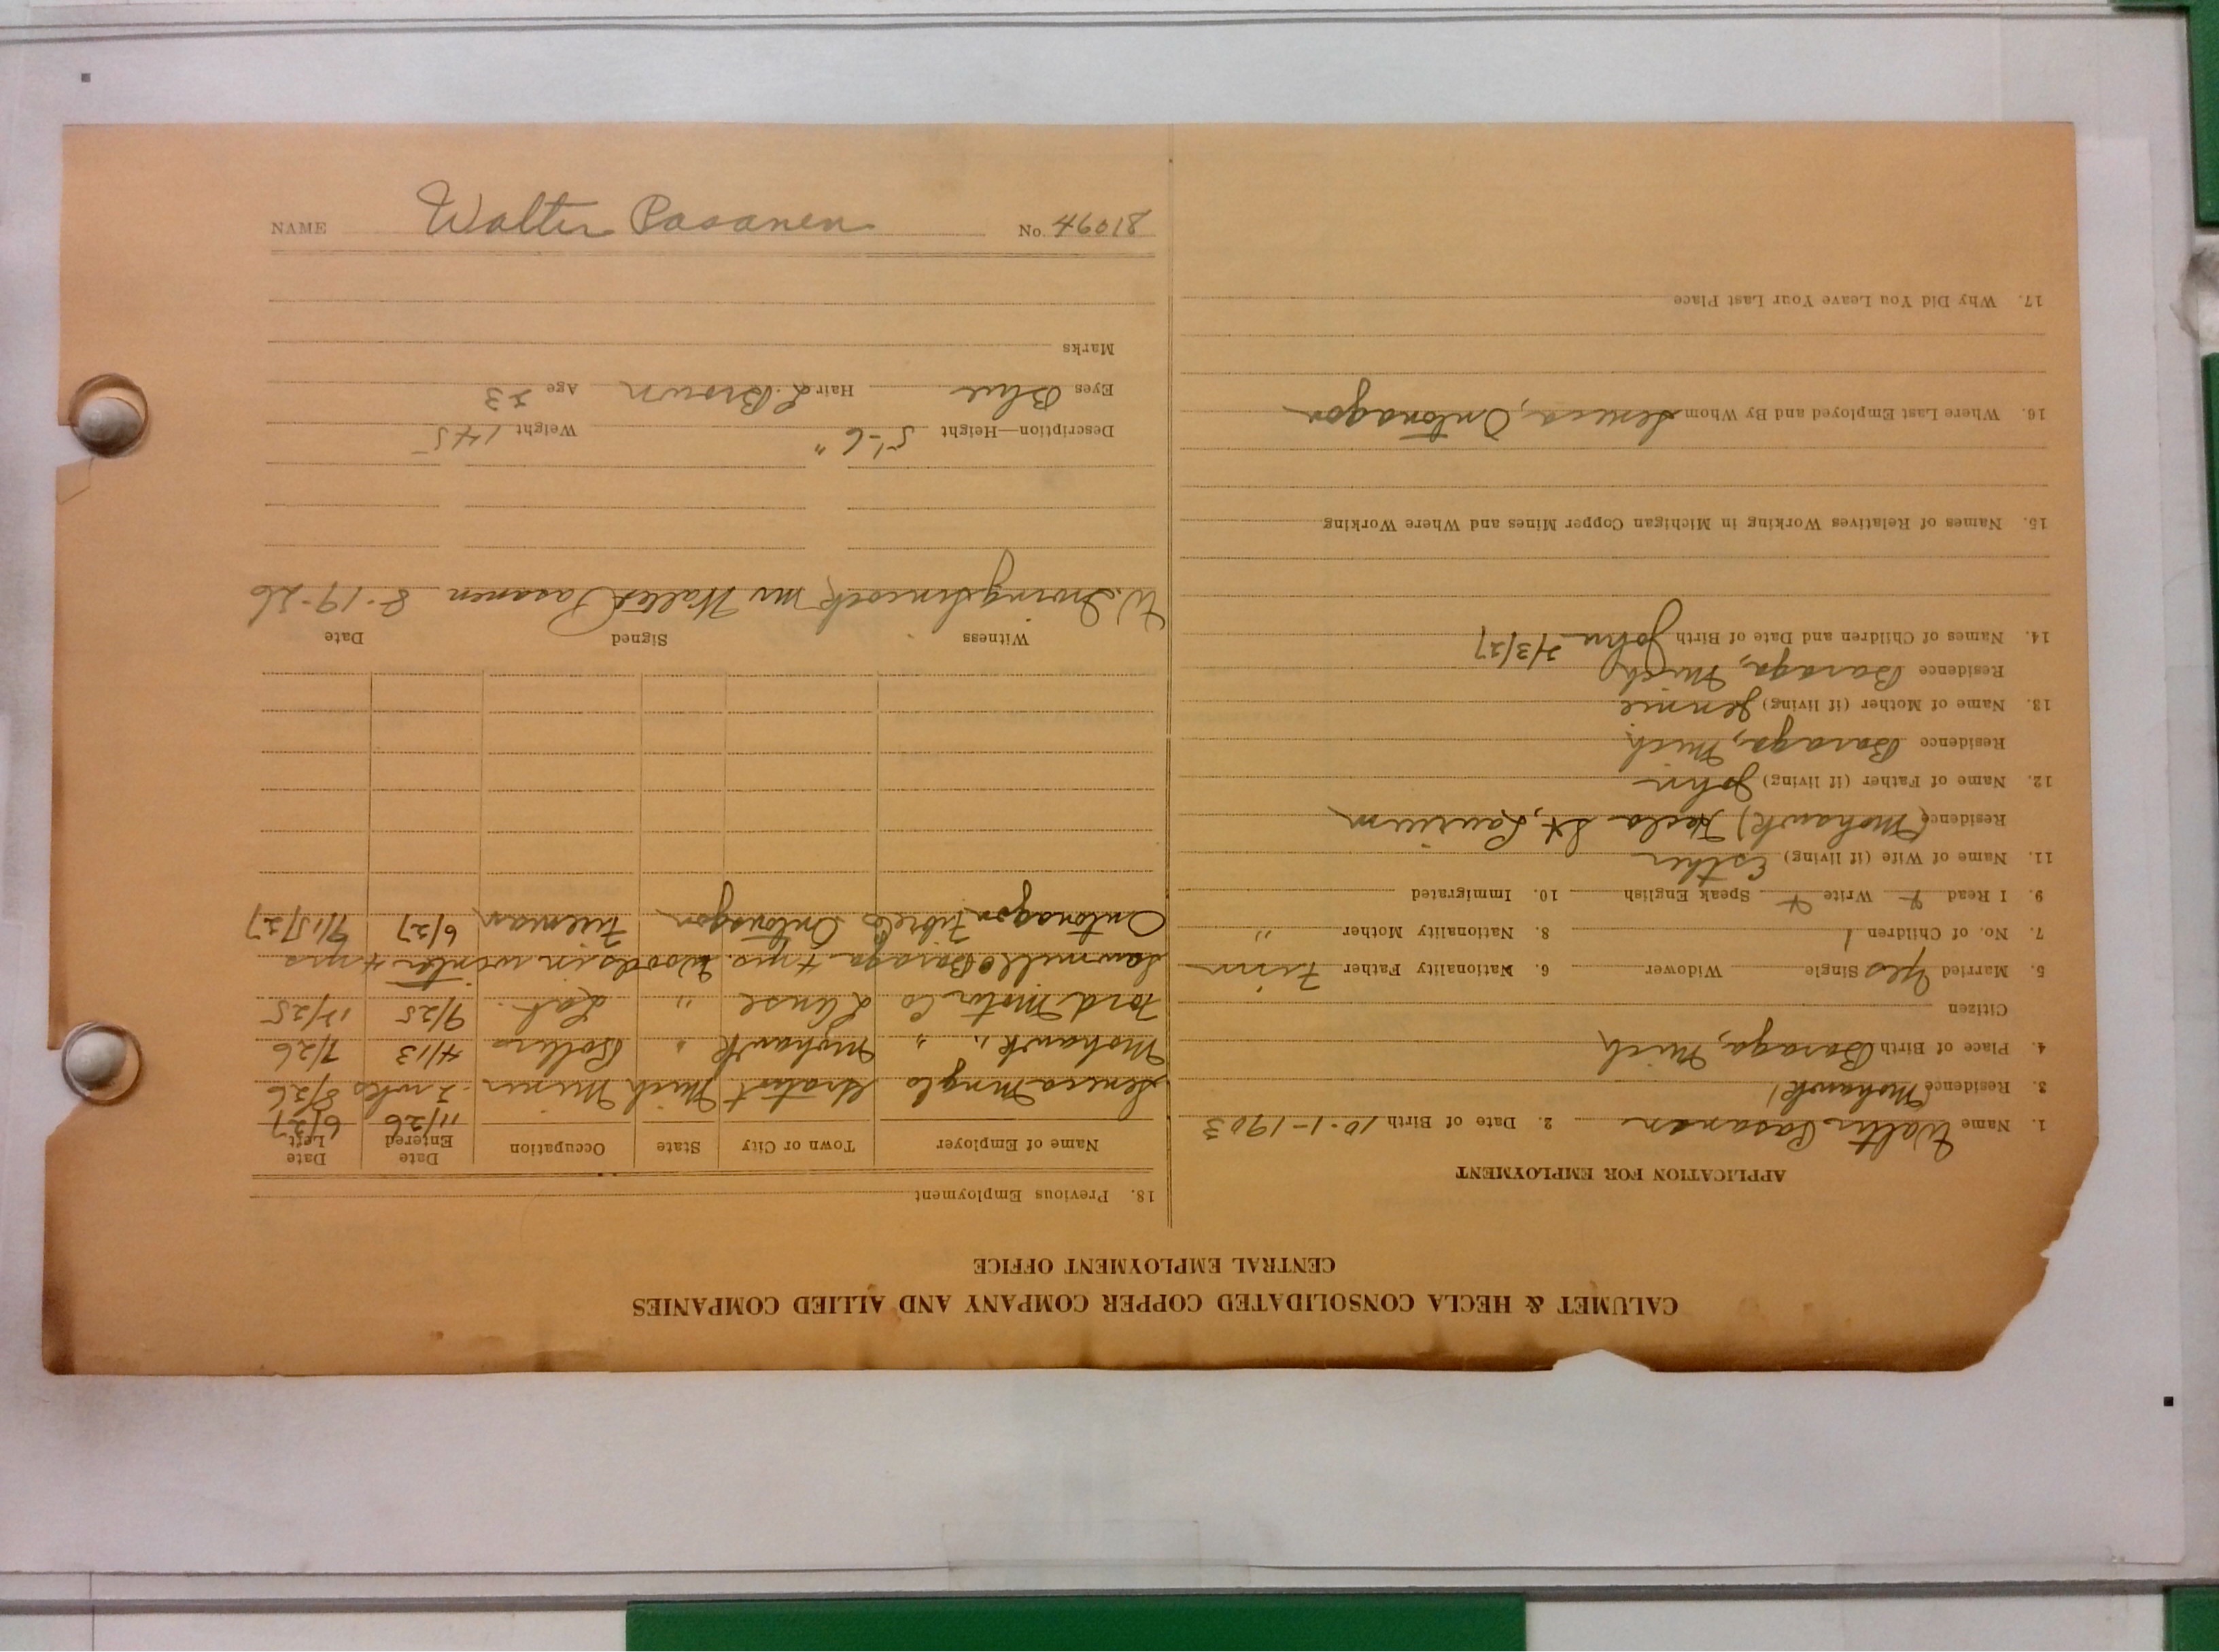 NAME Walter Pasanen No. 46018
CALUMET & HECLA CONSOLIDATED COPPER COMPANY AND ALLIED COMPANIES
CENTRAL EMPLOYMENT OFFICE
APPLICATION FOR EMPLOYMENT
1. Name Walter Pasanen 2. Date of Birth 10-1-1903
3. Residence (Mohawk)
4. Place of Birth Baraga, Mich
Citizen
5. Married Yes Single Widower 6. Nationality Father Finn
7. No. of Children 1 8. Nationality Mother "
9. I Read Write Speak English 10. Immigrated
11. Name of Wife (if living) Esther
Residence (Mohawk) Hecla St, Laurium
12. Name of Father (if living) John
Residence Baraga, Mich.
13. Name of Mother (if living) Jennie
Residence Baraga, Mich
14. Names of Children and Date of Birth John 2/3/27
15. Names of Relatives Working in Michigan Copper Mines and Where Working
16. Where Last Employed and By Whom Seneca, Ontonagon
17. Why Did You Leave Your Last Place
18. Previous Employment
Name of Employer Town or City State Occupation Date Entered Date Left
11/26 6/27
Seneca Mng Co Gratiot Mich Miner 2 wks 8/26
Mohawk " " Mohawk " 4/13 7/26
Ford Motor Co L'Anse " Lab. 9/25 12/25
Sawmill Baraga 4 yrs. Woods in winter 4 yrs
Ontonagon Fibre Co Ontonagon 6/27 9/15/27
Witness Signed Date
W. Irving Lincock Mr Walter Pasanen 8-19-26
Description—Height 5'-6" Weight 145
Eyes Blue Hair L. Brown Age 23
Marks